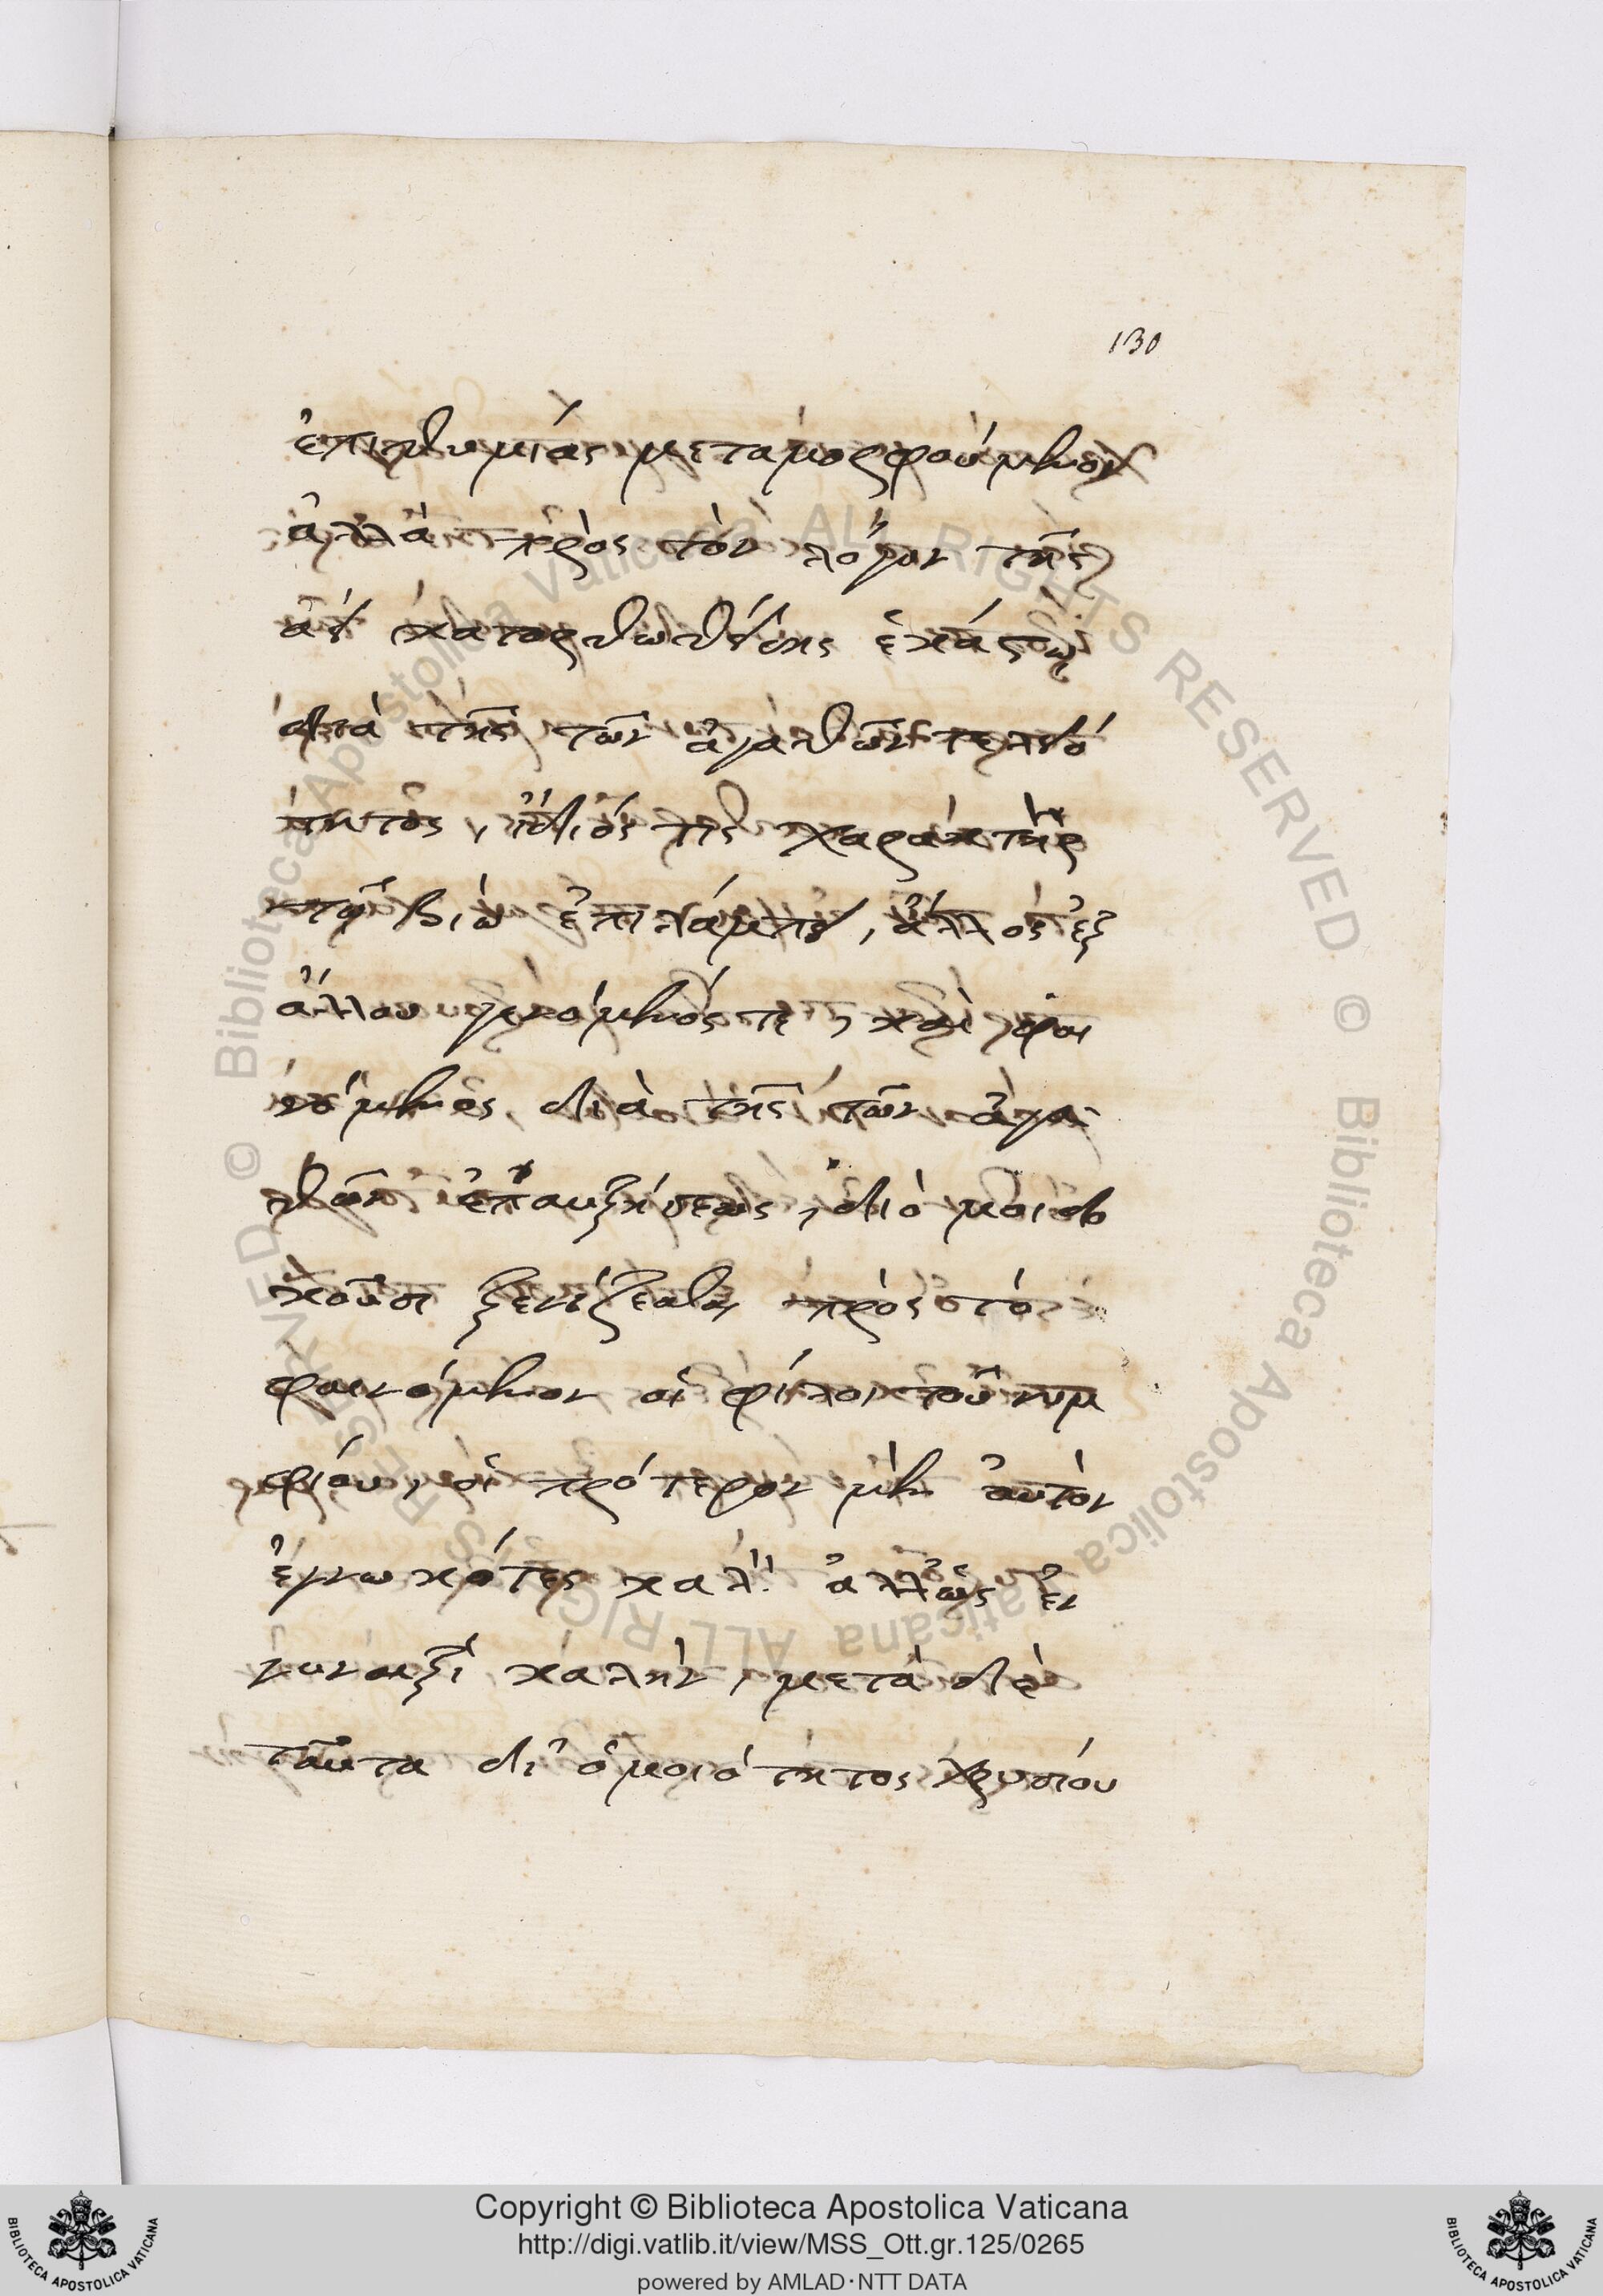 130
ἐπιθυμίας μεταμορφούμενον
ἀλλὰ πρὸς τὸν λόγον τῆς
ἀεὶ κατορθωθείσης ἑκάστῳ
διὰ τῆς τῶν ἀγαθῶν τελειό
τητος, ἴδιός τις χαρακτὴρ
τῷ βίῳ ἐπιλάμπει, ἄλλος ἐξ
ἄλλου γενόμενός τε, καὶ φαι
νόμενος διὰ τῆς τῶν ἀγα
θῶν ἐπαυξήσεως, διό μοι δο
κοῦσι ξενίζεσθαι πρὸς τὸ
φαινόμενον οἱ φίλοι τοῦ νυμ
φίου, οἱ πρότερον μὲν αὐτὸν
ἐγνωκότες καλὴ ἀλλ' ὡς ἐν
γυναιξὶ καλὴν, μετὰ δὲ
ταῦτα δι' ὁμοιότητος χρυσίου
Copyright © Biblioteca Apostolica Vaticana
http://digi.vatlib.it/view/MSS_Ott.gr.125/0265
powered by AMLAD·NTT DATA
BIBLIOTECA APOSTOLICA VATICANA
BIBLIOTECA APOSTOLICA VATICANA
© Biblioteca Apostolica Vaticana ALL RIGHTS RESERVED
© Biblioteca Apostolica Vaticana ALL RIGHTS RESERVED